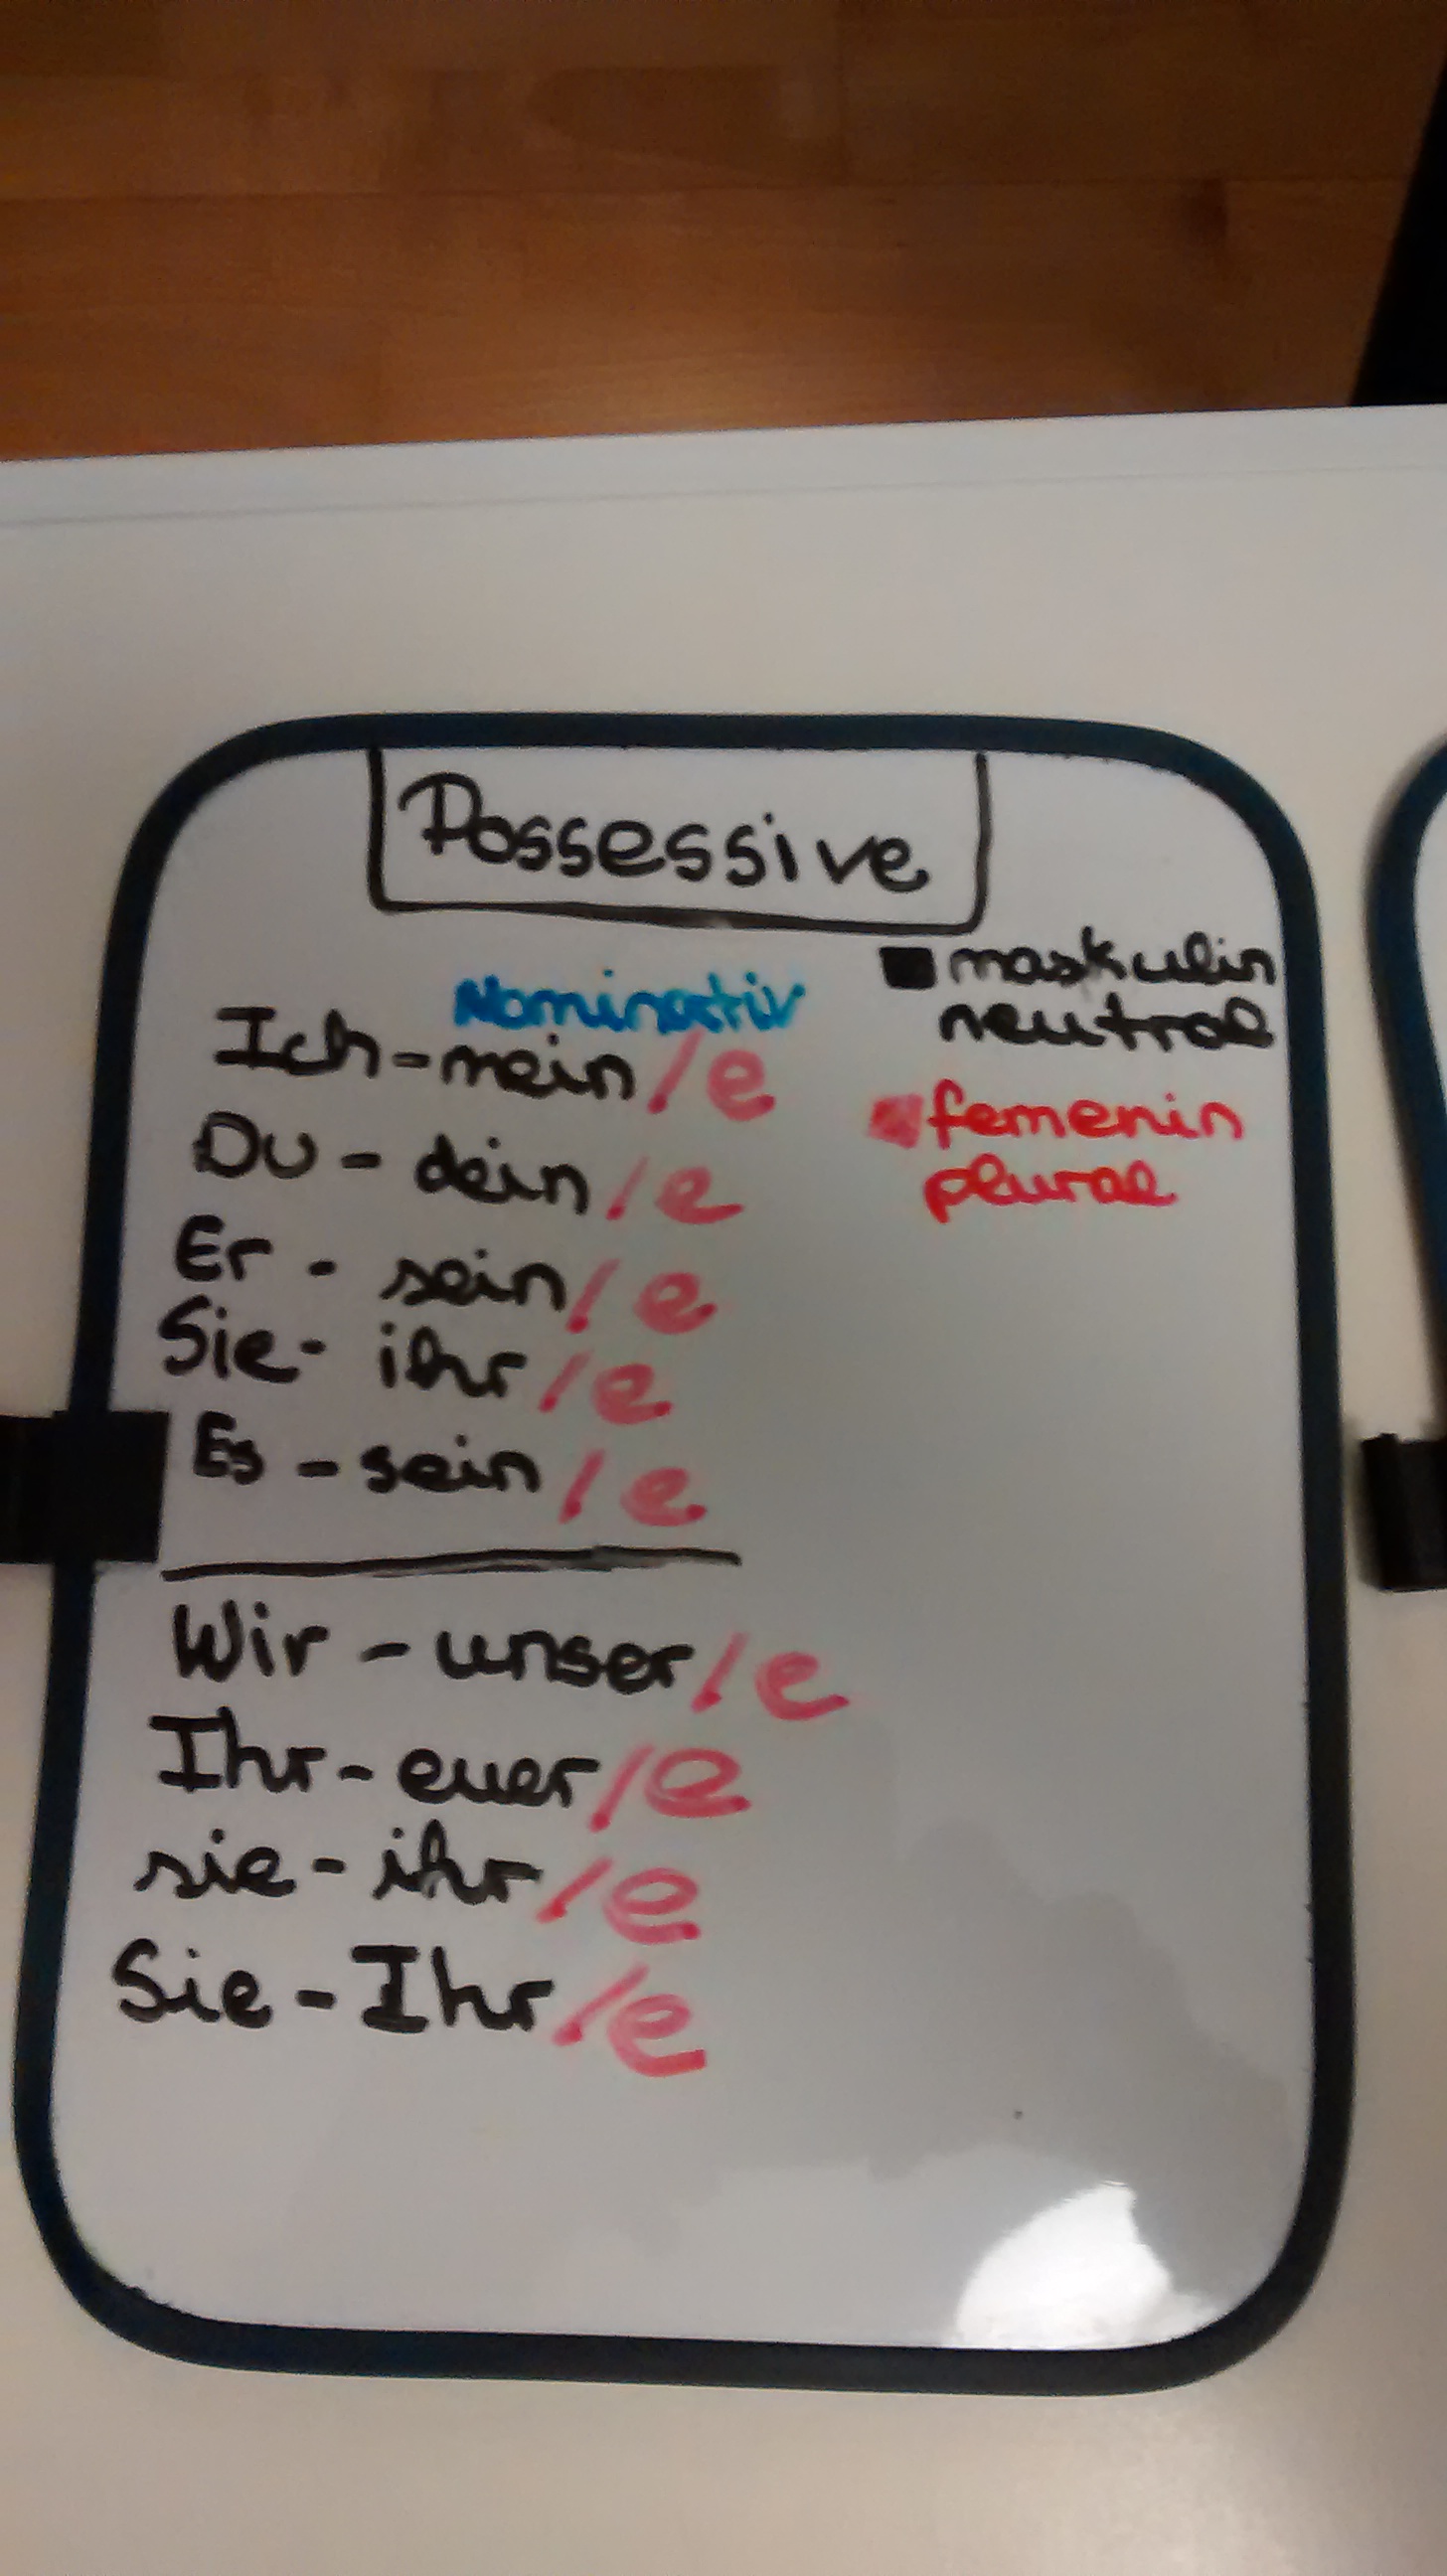 Possessive
Nominativ
■ maskulin
neutral
■ femenin
plural
Ich - mein/e
Du - dein/e
Er - sein/e
Sie - ihr/e
Es - sein/e
Wir - unser/e
Ihr - euer/e
sie - ihr/e
Sie - Ihr/e